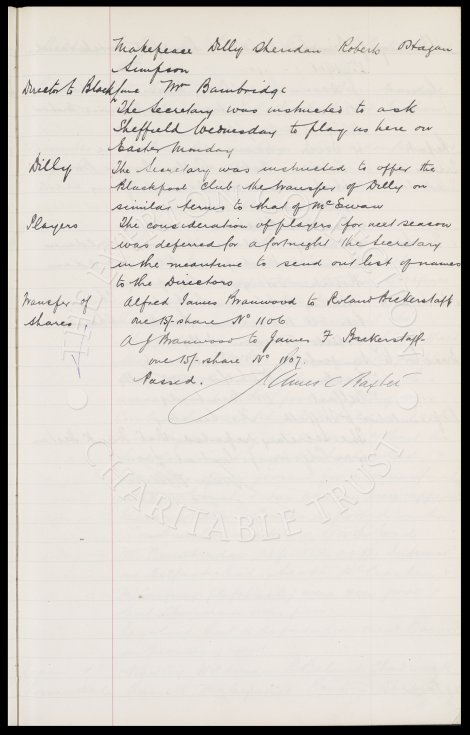 Makepeace Dilly Sheridan Roberts O'Hagan
Simpson
Director to Blackpool Mr Bainbridge
The Secretary was instructed to ask
Sheffield Wednesday to play us here on
Easter Monday
Dilly The Secretary was instructed to offer the
Blackpool Club the transfer of Dilly on
similar terms to that of McEwan
Players The consideration of players for next season
was deferred for a fortnight the Secretary
in the meantime to send out list of names
to the Directors
Transfer of Alfred James Bramwood to Roland Bickerstaff
Shares one 15/- share No 1106
A J Bramwood to James F Bickerstaff
one 15/- share No 1107.
Passed. James C Baxter
CHARITABLE TRUST